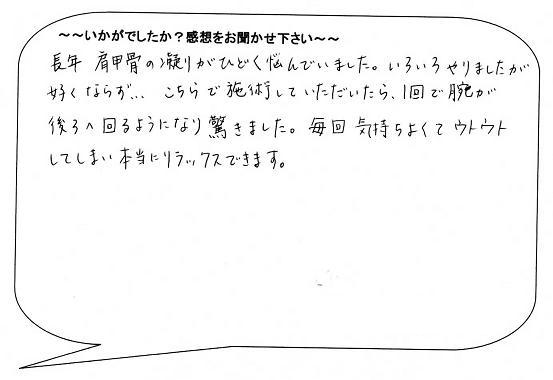 ～～いかがでしたか？感想をお聞かせ下さい～～
長年 肩甲骨の凝りがひどく悩んでいました。いろいろやりましたが
好くならず… こちらで施術していただいたら、1回で腕が
後ろへ回るようになり驚きました。毎回気持ちよくてウトウト
してしまい本当にリラックスできます。